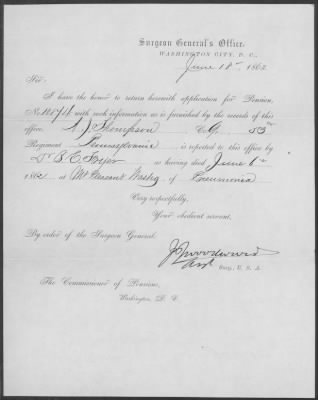 Surgeon General's Office,
WASHINGTON CITY, D. C.,
June 18th, 1862
Sir:
I have the honor to return herewith application for Pension,
No. with such information as is furnished by the records of this
office. Thompson Co. G 53rd
Regiment Pennsylvania is reported to this office by
Dr B. E. Fryer as having died June 6th
1862 at Mt Pleasant Washtg of Pneumonia
Very respectfully,
Your obedient servant,
By order of the Surgeon General:
J J Woodward
Asst Surg., U. S. A.
The Commissioner of Pensions,
Washington, D. C.